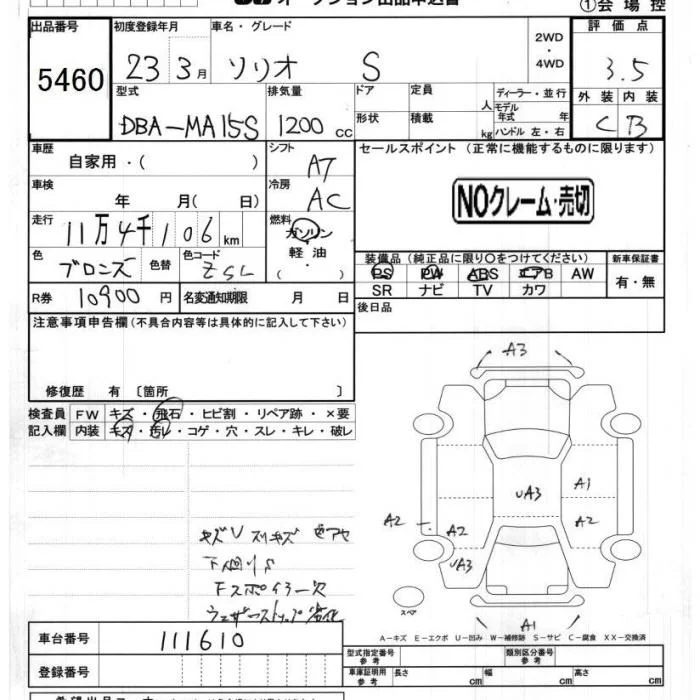 オークション出品申込書
①会場控
出品番号 初度登録年月 車名・グレード 2WD・4WD 評価点
5460 23 3月 ソリオ S 3.5
型式 排気量 ドア 定員 人 ディーラー・並行 外装 内装
DBA-MA15S 1200cc 形状 積載 kg モデル年式 年 ハンドル 左・右 C B
車歴 シフト セールスポイント (正常に機能するものに限ります)
自家用・( ) AT
車検 冷房
年 月( 日) AC NOクレーム・売切
走行 燃料
11万4千106km ガソリン 軽油 ( ・ )
色 色替 色コード 装備品(純正品に限り○をつけてください) 新車保証書
ブロンズ ZSL PS PW ABS エアB AW 有・無
SR ナビ TV カワ
R券 10900円 名変通知期限 月 日 後日品
注意事項申告欄(不具合内容等は具体的に記入して下さい)
修復歴 有 〔箇所 〕
検査員 FW キズ・飛石・ヒビ割・リペア跡・×要
記入欄 内装 キズ・汚レ・コゲ・穴・スレ・キレ・破レ
A3
UA3
A1
A2
A2 A2
UA3
スペア
A1
下回りS
Fスポイラー欠
ウェザーストリップ劣化
A-キズ E-エクボ U-凹み W-補修跡 S-サビ C-腐食 XX-交換済
車台番号 111610
型式指定番号 参考 類別区分番号 参考
登録番号 車庫証明用 参考 長さ cm 幅 cm 高さ cm